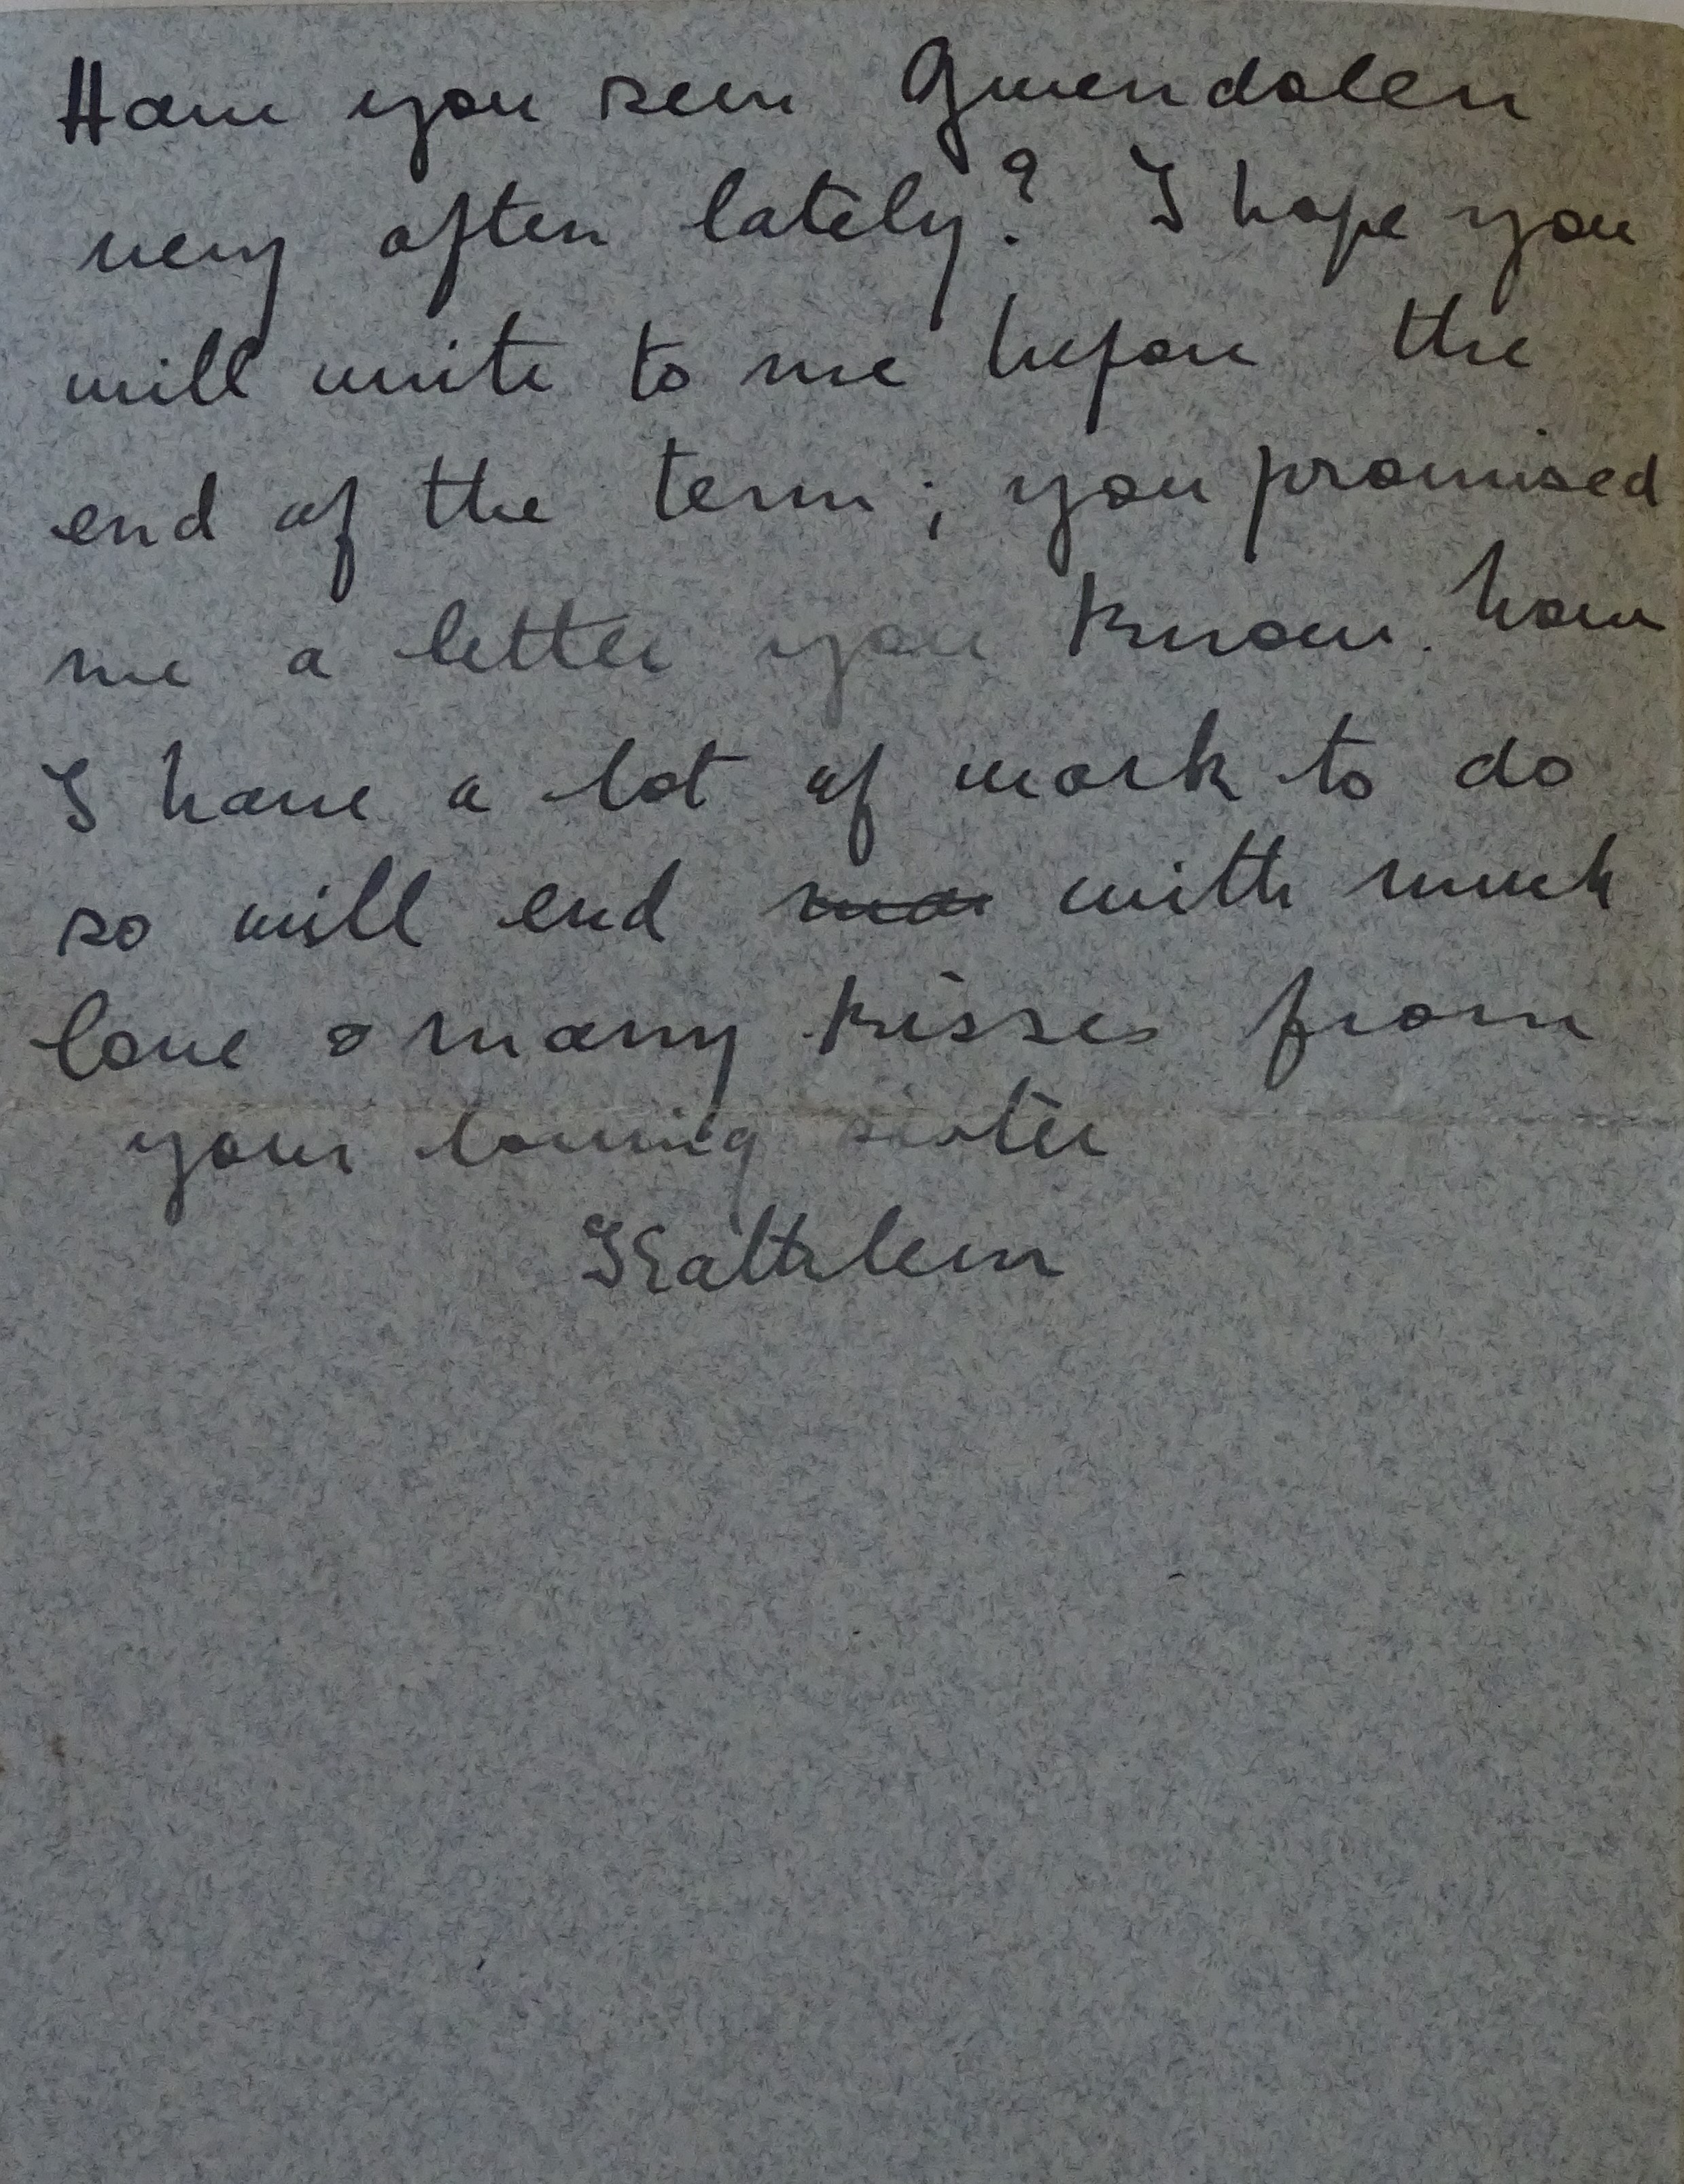 Have you seen Gwendolen
very often lately? I hope you
will write to me before the
end of the term; you promised
me a letter you know. how
I have a lot of work to do
so will end with much
love & many kisses from
your loving sister
Kathleen